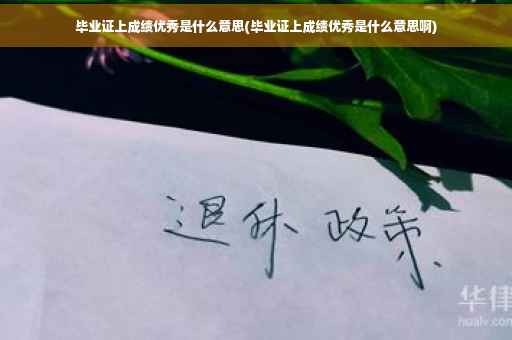 毕业证上成绩优秀是什么意思(毕业证上成绩优秀是什么意思啊)
退休 政策
华律
hualv.com